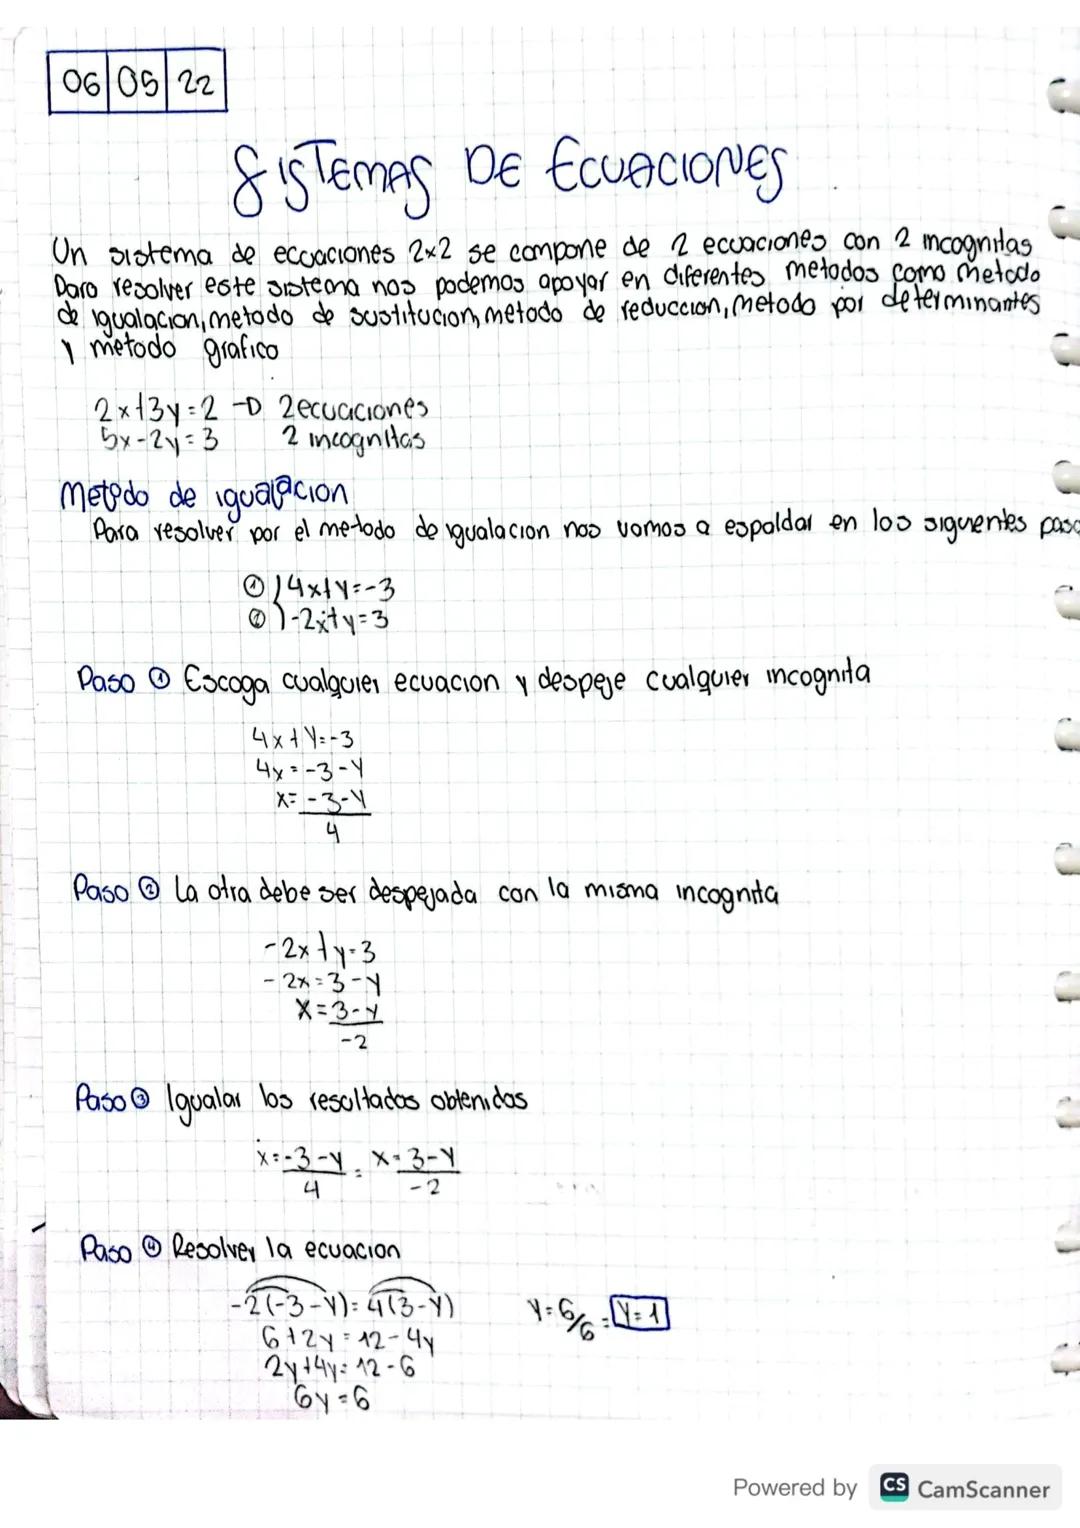 06 05 22
SISTEMAS DE ECUACIONES
Un sistema de ecuaciones 2x2 se compone de 2 ecuaciones con 2 incognitas
Para resolver este sistema nos podemos apoyar en diferentes metodos como metodo
de igualacion, metodo de sustitucion, metodo de reduccion, metodo por determinantes
y metodo grafico
2x+3y=2 → 2ecuaciones
5x-2y=3 2 incognitas
Metodo de igualacion
Para resolver por el metodo de igualacion nos vamos a espaldar en los siguentes paso
① 4x+y=-3
② -2x+y=3
Paso ① Escoga cualquier ecuacion y despeje cualquier incognita
4x+y=-3
4x=-3-y
x=-3-y
4
Paso ② La otra debe ser despejada con la misma incognita
-2x+y=3
-2x=3-y
x=3-y
-2
Paso ③ Igualar los resultados obtenidos
x=-3-y = x=3-y
4 -2
Paso ④ Resolver la ecuacion
-2(-3-y)=4(3-y) y=6/6=y=1
6+2y=12-4y
2y+4y=12-6
6y=6
Powered by CS CamScanner